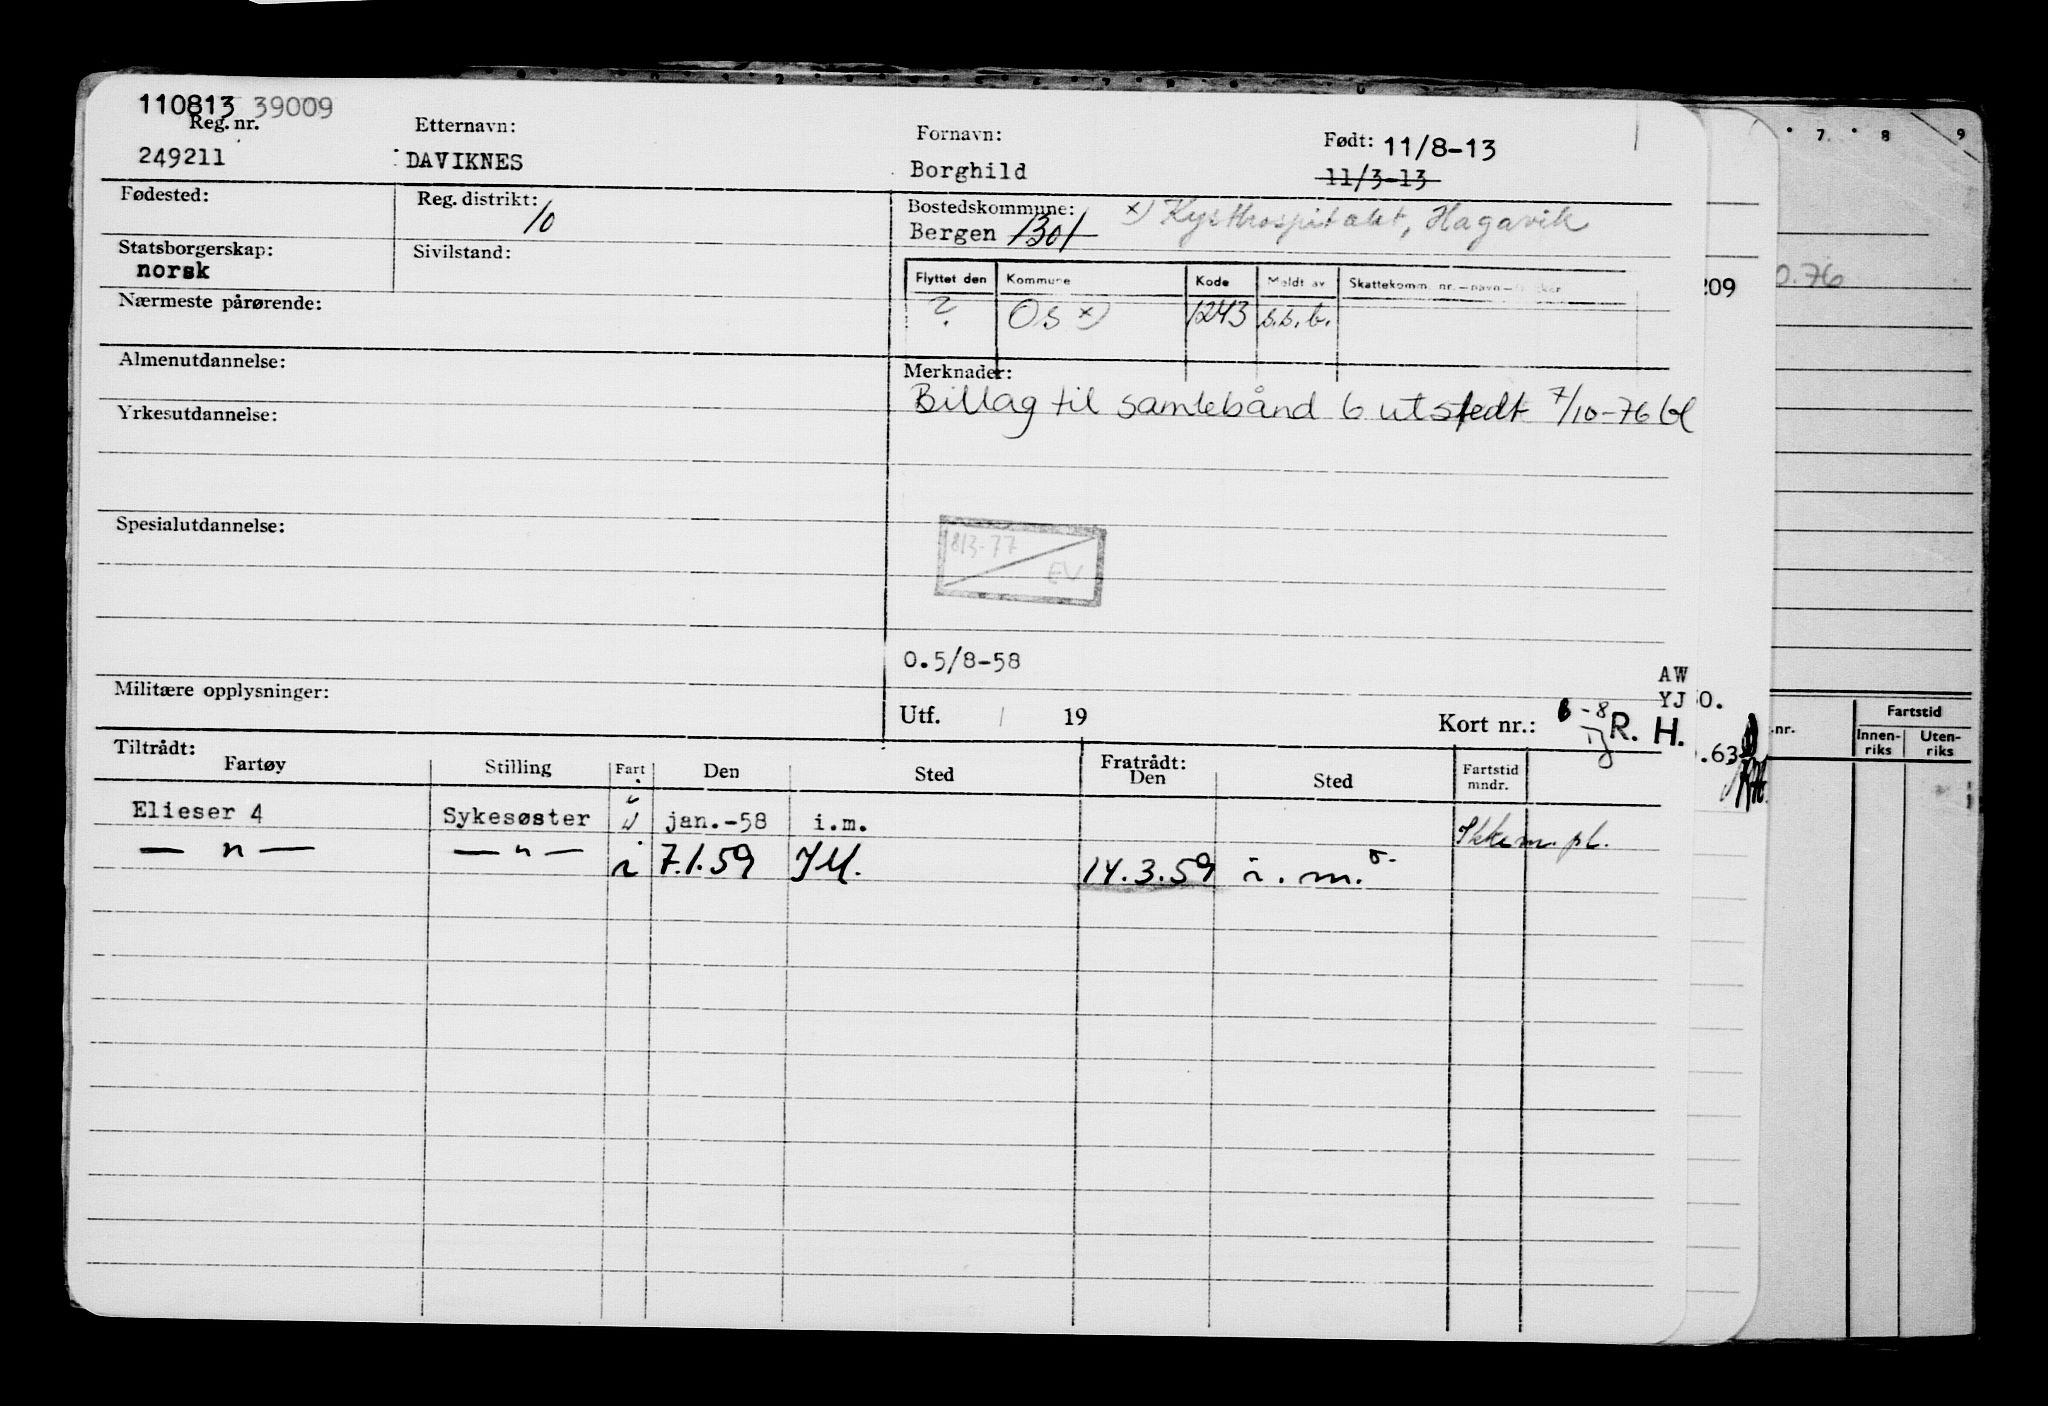 110813 39009
Reg. nr. Etternavn: Fornavn: Født: 11/8-13
249211 DAVIKNES Borghild 11/3-13
Fødested: Reg. distrikt: 10 Bostedskommune: x) Kysthospitalet, Hagavik
Bergen 1301
Statsborgerskap: Sivilstand:
norsk
Flyttet den Kommune Kode Meldt av Skattekomm. nr. – navn –
? Os x) 1243 s.s.b.
Nærmeste pårørende:
Almenutdannelse: Merknader:
Billag til samlebånd 6 utstedt 7/10-76
Yrkesutdannelse:
Spesialutdannelse:
8/3-77
EV
0.5/8-58
AW
Militære opplysninger: YJ 50.
Utf. / 19 Kort nr.: 6-8 R. H.
Tiltrådt: Fratrådt:
Fartøy Stilling Fart Den Sted Den Sted Fartstid mndr.
Elieser 4 Sykesøster jan.-58 i.m. Ikke m. pl.
— " — — " — i 7.1.59 IM. 14.3.59 i.m.
209
0.76
.63
7 8 9
.nr. Fartstid
Innen-riks Uten-riks